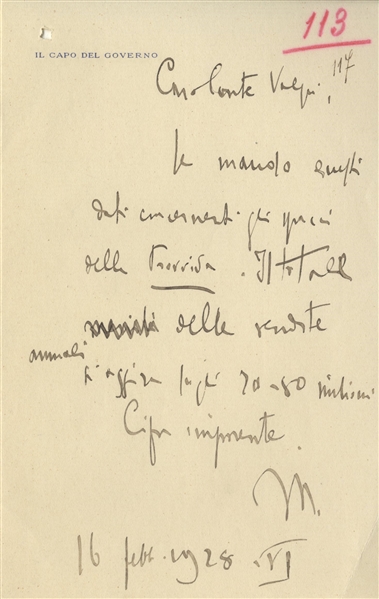 113
IL CAPO DEL GOVERNO
Caro Conte Volpi, 117
Le mando questi
dati concernenti gli spacci
della Provvida. Il totale
delle vendite
annuali
si aggira sugli 70-80 milioni
Cifra imponente.
M.
16 febb. 1928. VI